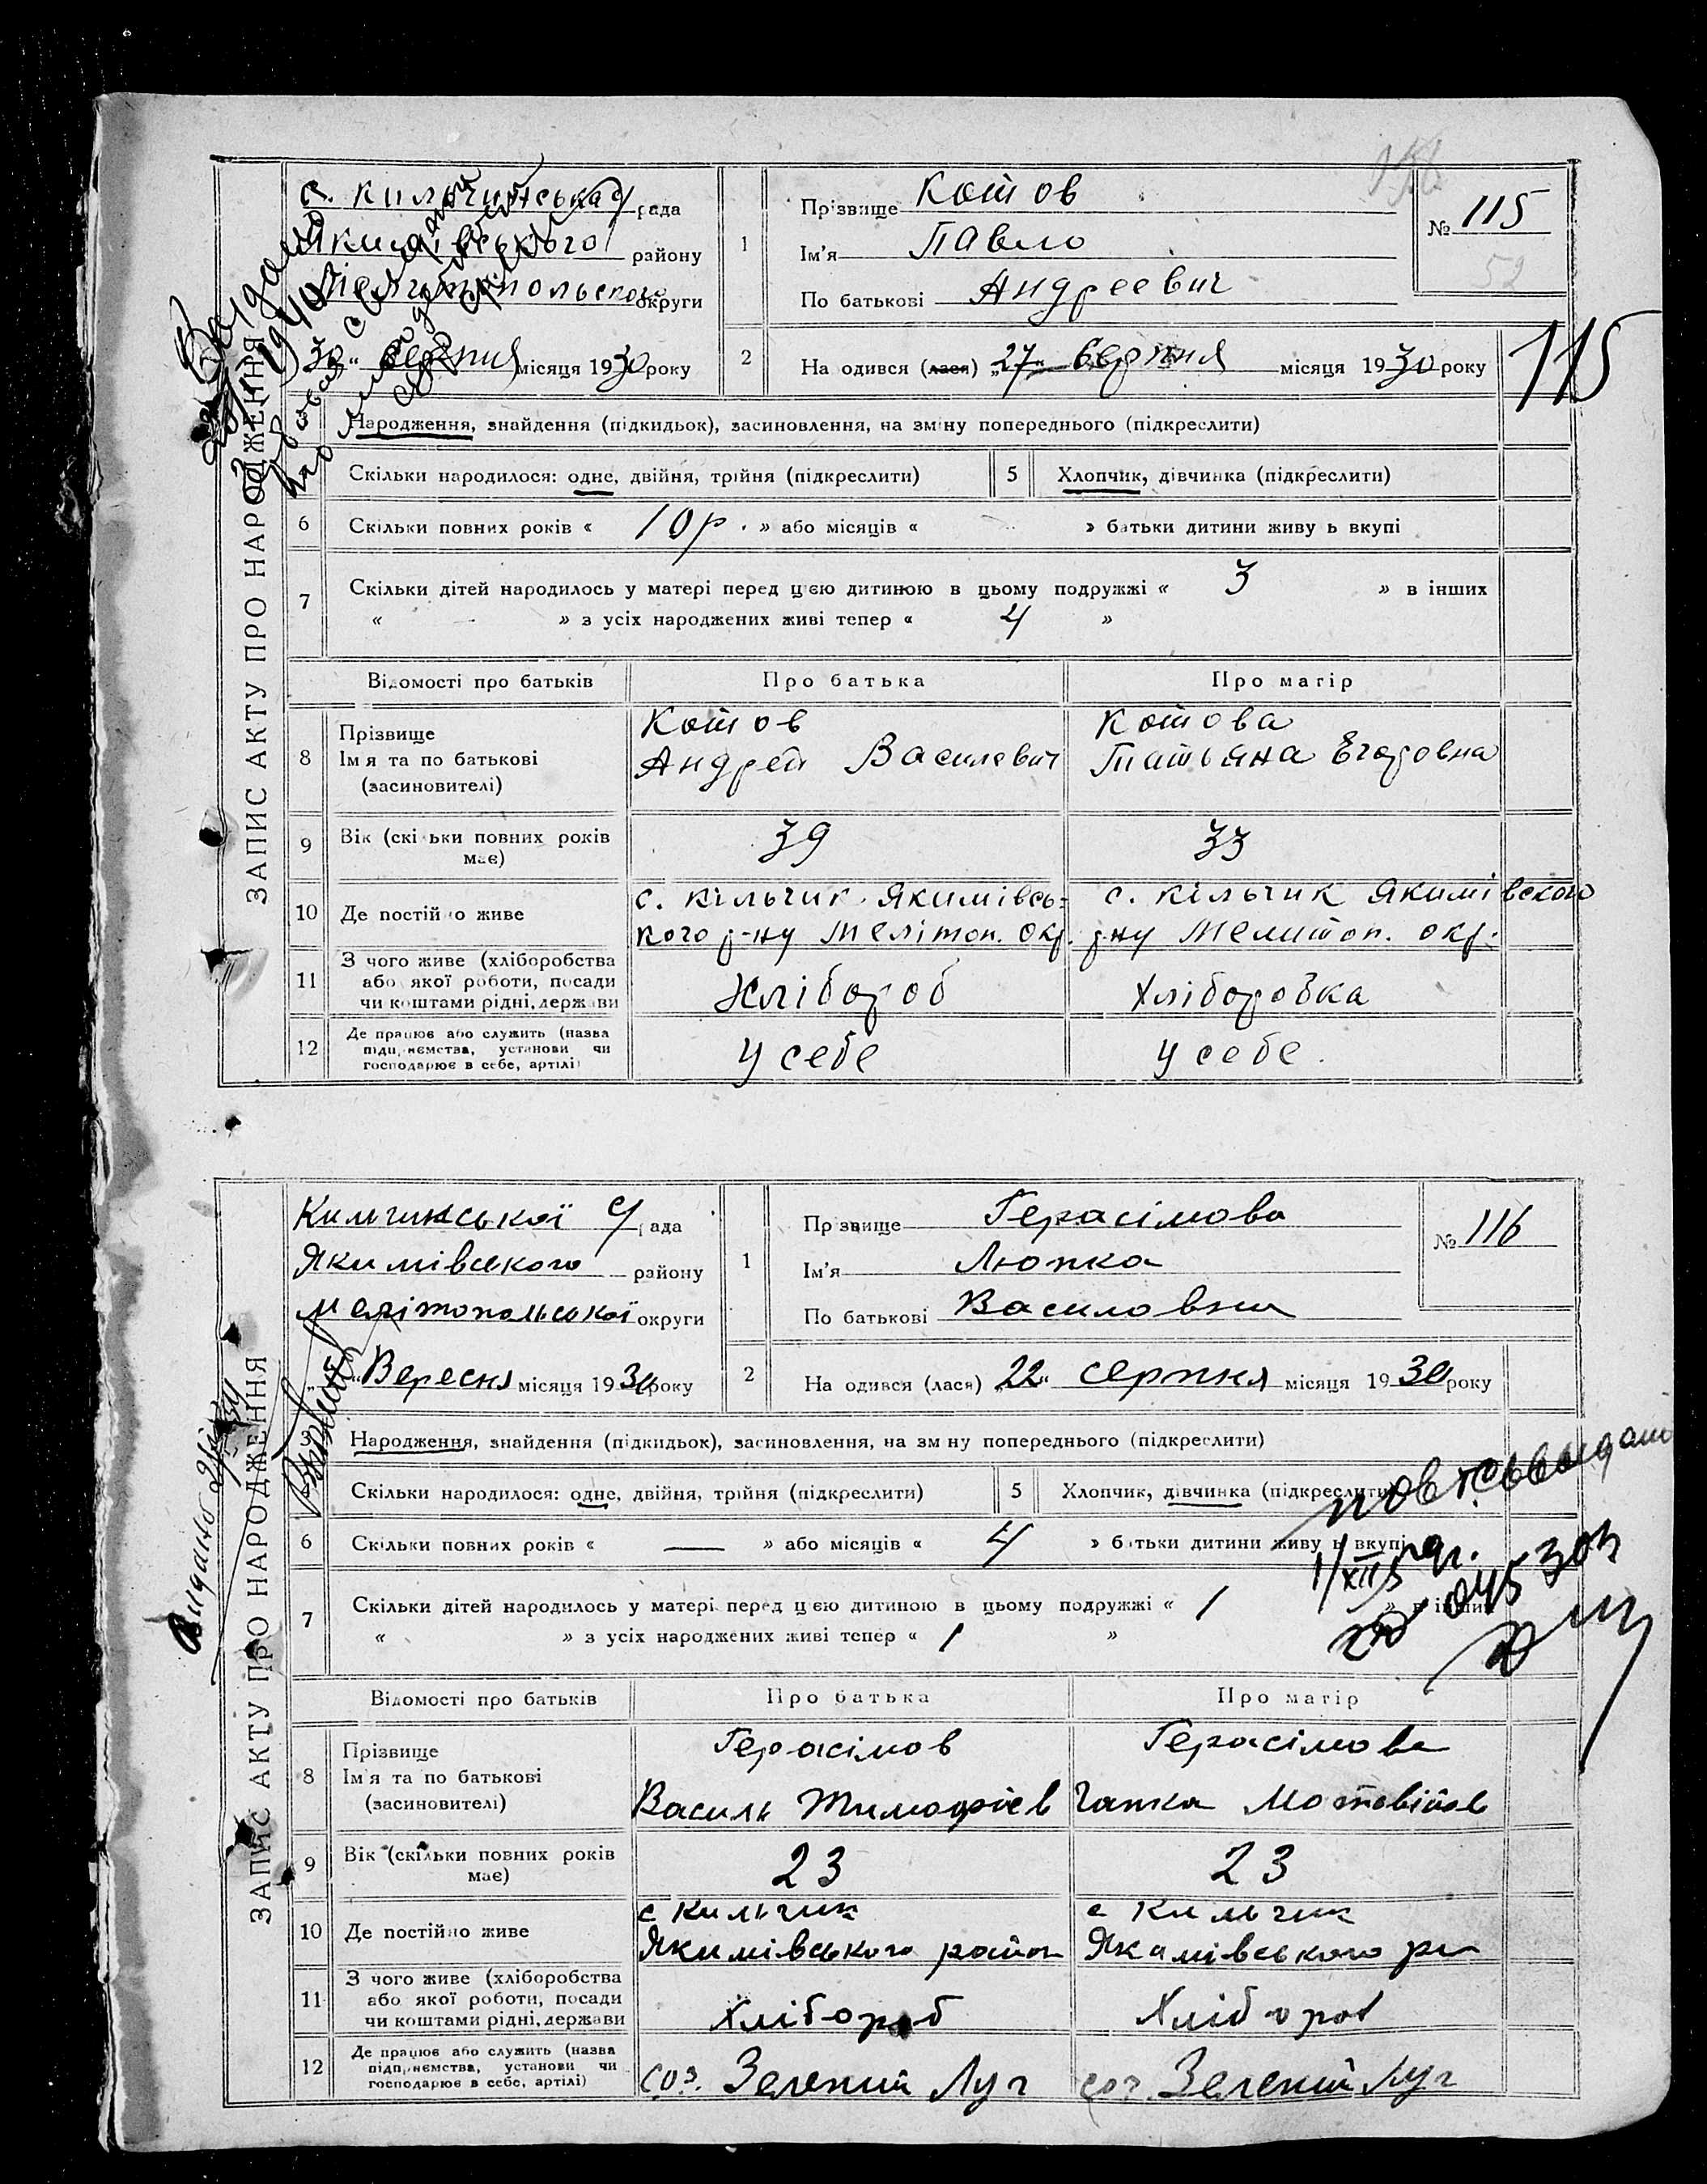 ЗАПИС АКТУ ПРО НАРОДЖЕННЯ
с. Кильчинська с/рада
Якимівського району
Мелитопольского округи
"30" серпня місяця 1930 року
1
Прізвище Котов
Ім'я Павло
По батькові Андреевич
№ 115
52
2
На одився (лася) "27" серпня місяця 1930 року
115
Народження, знайдення (підкидьок), засиновлення, на зміну попереднього (підкреслити)
Скільки народилося: одне, двійня, трійня (підкреслити)
5 Хлопчик, дівчинка (підкреслити)
6 Скільки повних років « 10 р. » або місяців « » батьки дитини живу ь вкупі
7 Скільки дітей народилось у матері перед цією дитиною в цьому подружжі « 3 » в інших
« - » з усіх народжених живі тепер « 4 »
Відомості про батьків Про батька Про матір
8 Прізвище
Ім'я та по батькові
(засиновителі)
Котов
Андрей Василевич
Котова
Татьяна Егоровна
9 Вік (скільки повних років
має)
39 33
10 Де постійно живе
с. Кільчик Якимівсь-
кого р-ну Мелітоп. Окр.
с. Кільчик Якимівского
р-ну Мелитоп. окр.
11 З чого живе (хліборобства
або якої роботи, посади
чи коштами рідні, держави
Хлібороб Хлiборобка
12 Де працює або служить (назва
підприємства, установи чи
господарює в себе, артілі)
У себе У себе.
ЗАПИС АКТУ ПРО НАРОДЖЕННЯ
Видано
Кильчинської с/рада
Якимівського району
Мелітопольської округи
Вересня місяця 1930 року
1
Прізвище Герасімова
Ім'я Любка
По батькові Василовни
№ 116
2
На одився (лася) "22" серпня місяця 1930 року
3 Народження, знайдення (підкидьок), засиновлення, на зм ну попереднього (підкреслити)
Скільки народилося: одне, двійня, трійня (підкреслити)
5 Хлопчик, дівчинка (підкреслити)
6 Скільки повних років « — » або місяців « 4 » батьки дитини живу ь вкупі
7 Скільки дітей народилось у матері перед цією дитиною в цьому подружжі « 1 » в інших
« » з усіх народжених живі тепер « 1 »
Відомості про батьків Про батька Про матір
8 Прізвище
Ім'я та по батькові
(засиновителі)
Герасімов
Василь Тимофіев
Герасімова
Ганка Мотовійов
9 Вік (скільки повних років
має)
23 23
10 Де постійно живе
с Кильчик
Якимівського район
с Кильчик
Якимівського рн
11 З чого живе (хліборобства
або якої роботи, посади
чи коштами рідні, держави
Хлібороб Хлібороб
12 Де працює або служить (назва
підприємства, установи чи
господарює в себе, артілі)
соз. Зелений Луч соз. Зелений Луч